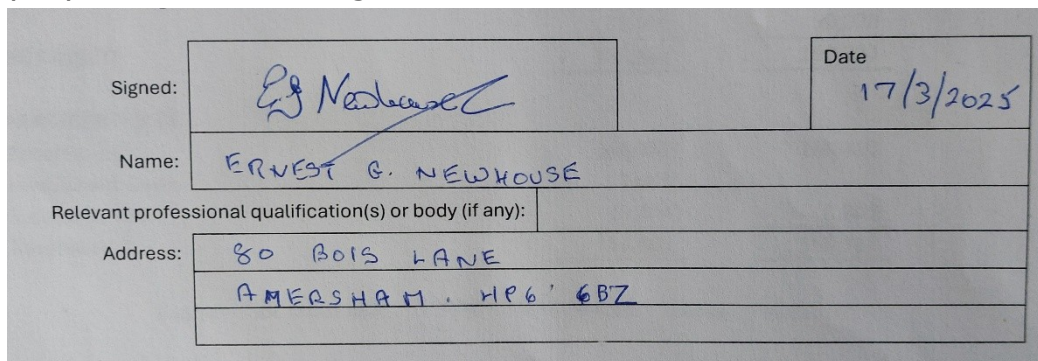 Signed: EG Newhouse
Date
17/3/2025
Name: ERNEST G. NEWHOUSE
Relevant professional qualification(s) or body (if any):
Address: 80 BOIS LANE
AMERSHAM. HP6 6BZ